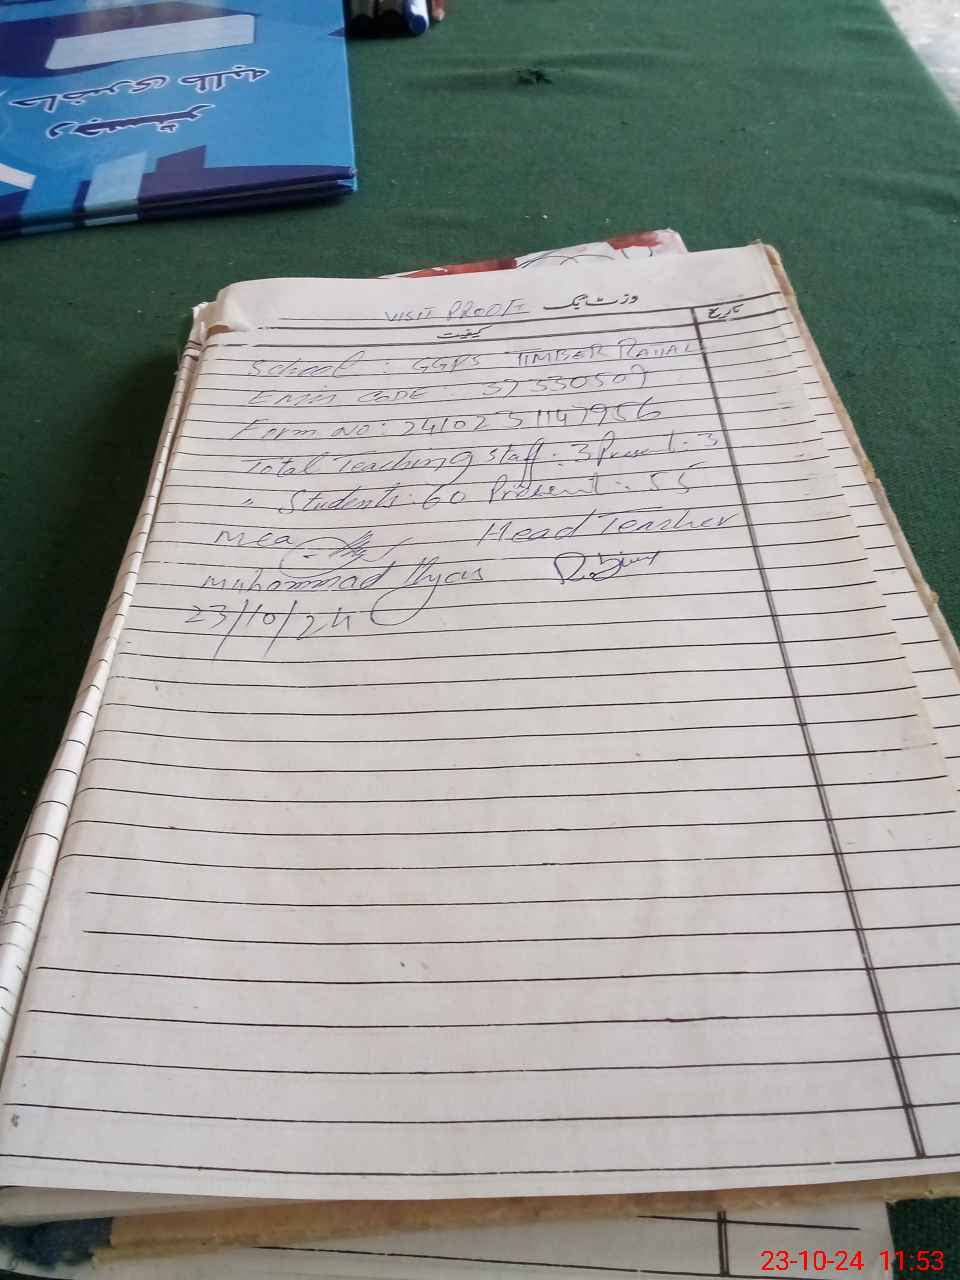 رجسٹر
حاضری طلبہ
VISIT PROOF وزٹ بک
تاریخ
کیفیت
School : GGPS TIMBER RAHAL
EMIS CODE : 37330507
Form NO: 2410231147956
Total Teaching staff : 3 Present : 3
" Students : 60 Present : 55
Mea Head Teacher
Muhammad Ilyas
23/10/24
23-10-24 11:53